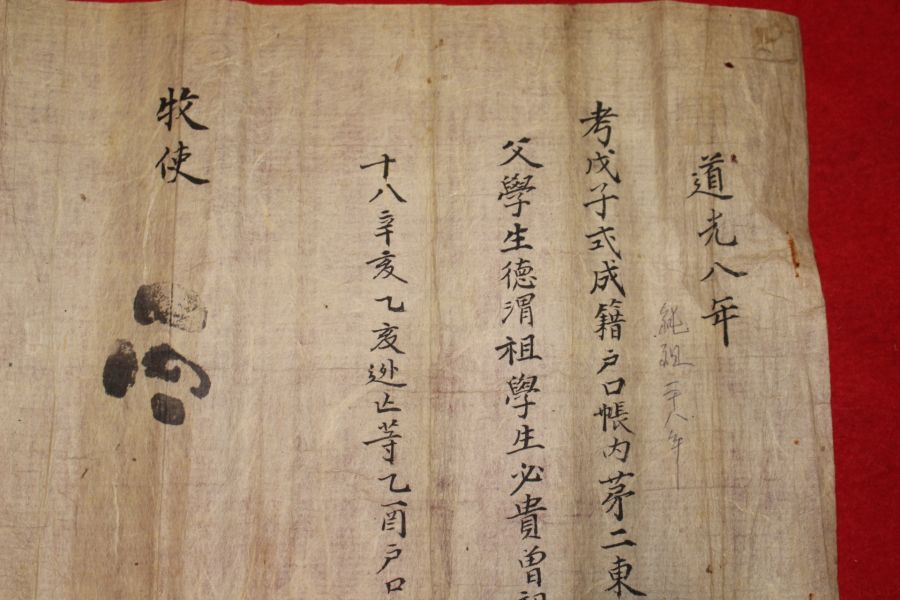 道光八年
純祖二十八年
考戊子式成籍戶口帳內茅二東
父學生德渭祖學生必貴曾祖
十八辛亥乙亥迯亡等乙酉戶口
牧使